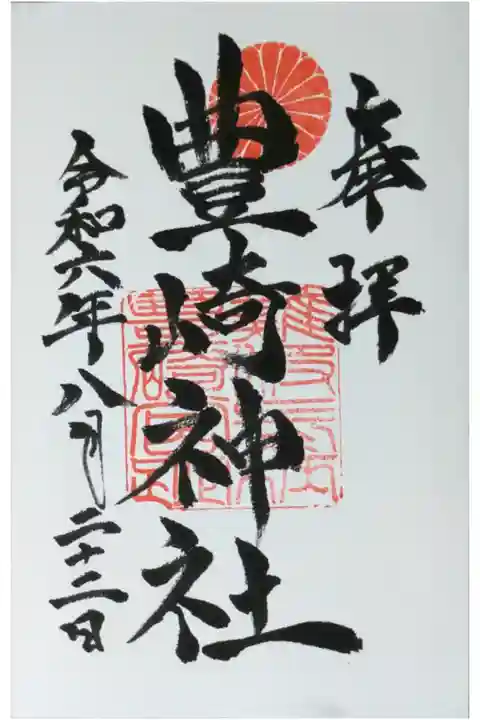 奉拝
豊崎神社
令和六年八月二十二日